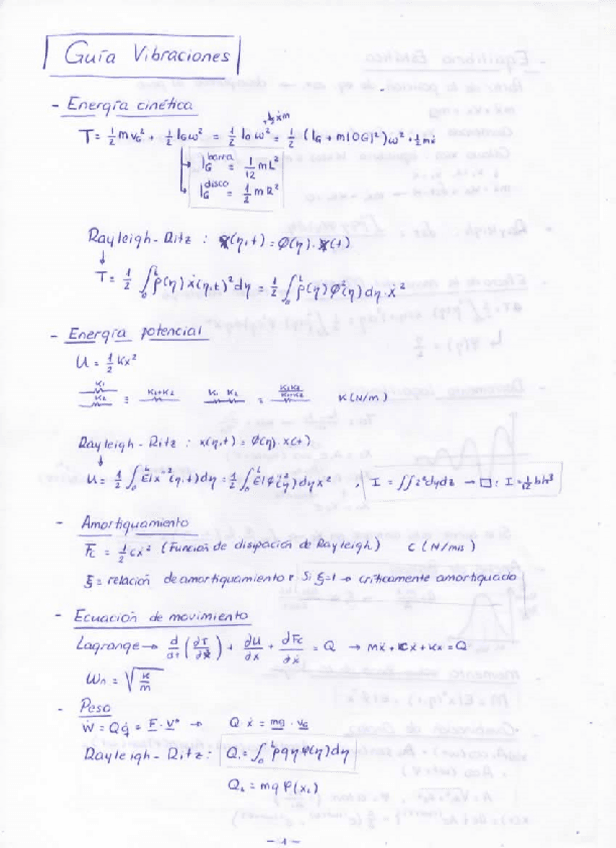 Guía Vibraciones
- Energía cinética
T = 1/2 m v_G² + 1/2 I_G ω² = 1/2 I_O ω² = 1/2 (I_G + m|OG|²) ω² + 1/2 m ẋ
I_G^barra = 1/12 m L²
I_G^disco = 1/2 m R²
Rayleigh-Ritz : x(η,t) = φ(η) · x(t)
T = 1/2 ∫₀ᴸ ρ(η) ẋ(η,t)² dη = 1/2 ∫₀ᴸ ρ(η) φ²(η) dη · ẋ²
- Energía potencial
U = 1/2 Kx²
K₁ K₂ = K₁+K₂ K₁ K₂ = K₁K₂/K₁+K₂ K (N/m)
Rayleigh-Ritz : x(η,t) = φ(η) · x(t)
U = 1/2 ∫₀ᴸ EI x''² (η,t) dη = 1/2 ∫₀ᴸ EI φ''²(η) dη x² , I = ∬ z² dy dz → □ : I = 1/12 b h³
- Amortiguamiento
F_c = 1/2 c ẋ² (Función de disipación de Rayleigh) c (N/m/s)
ξ = relación de amortiguamiento. Si ξ=1 → críticamente amortiguado
- Ecuación de movimiento
Lagrange → d/dt (∂T/∂ẋ) + ∂U/∂x + ∂F_c/∂ẋ = Q → mẍ + cẋ + kx = Q
ω_n = √(K/m)
- Peso
Ẇ = Q q̇ = F · v* → Q · ẋ = mg · v_G
Rayleigh-Ritz: Q₁ = ∫₀ᴸ ρ g η φ(η) dη
Q₂ = mg φ(x₀)
- 1 -